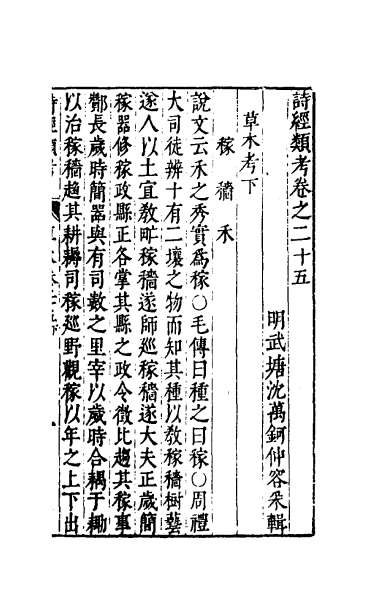 詩經類考卷之二十五
明武塘沈萬鈳仲容采輯
草木考下
稼穡禾
說文云禾之秀實爲稼○毛傳曰種之曰稼○周禮
大司徒辨十有二壤之物而知其種以教稼穡樹藝
遂人以土宜教甿稼穡遂師巡稼穡遂大夫正歲簡
稼器修稼政縣正各掌其縣之政令徵比趨其稼事
酇長歲時簡器與有司數之里宰以歲時合耦于耡
以治稼穡趨其耕耨司稼巡野觀稼以年之上下出